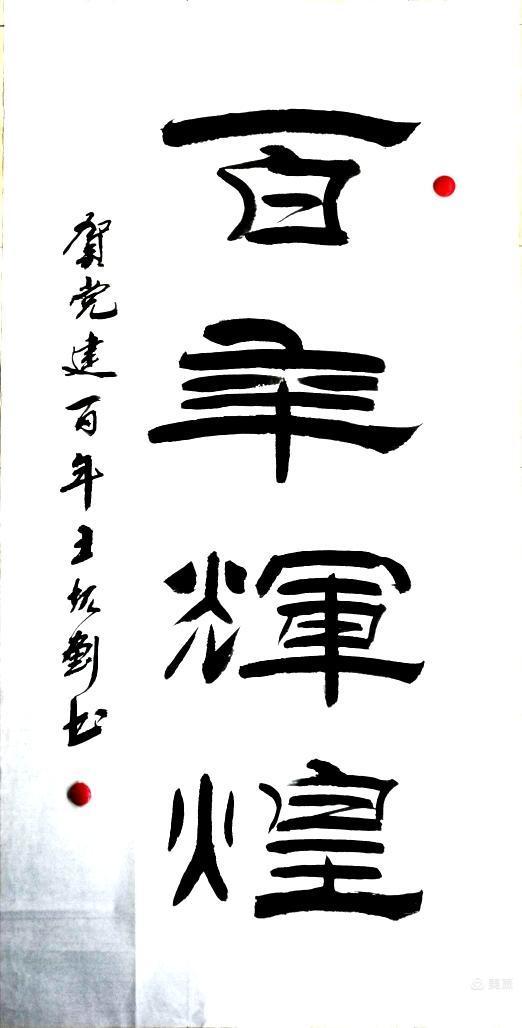 百年輝煌
賀党建百年王坂劉书
美篇